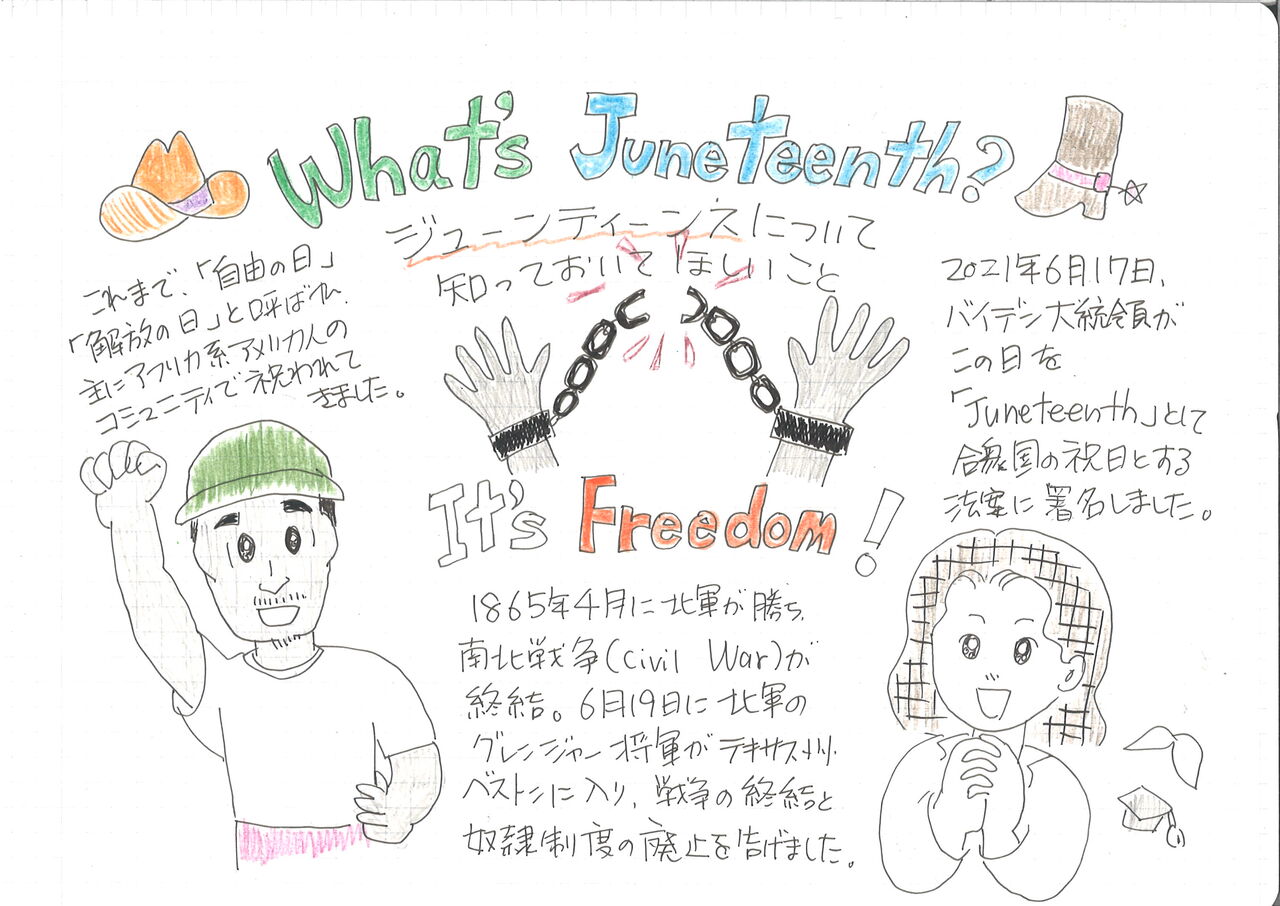 What's Juneteenth?
ジューンティーンスについて
知っておいてほしいこと
これまで、「自由の日」
「解放の日」と呼ばれ、
主にアフリカ系アメリカ人の
コミュニティで祝われて
きました。
2021年6月17日、
バイデン大統領が
この日を
「Juneteenth」として
合衆国の祝日とする
法案に署名しました。
It's Freedom!
1865年4月に北軍が勝ち、
南北戦争(Civil War)が
終結。6月19日に北軍の
グレンジャー将軍がテキサス州
ベストンに入り、戦争の終結と
奴隷制度の廃止を告げました。